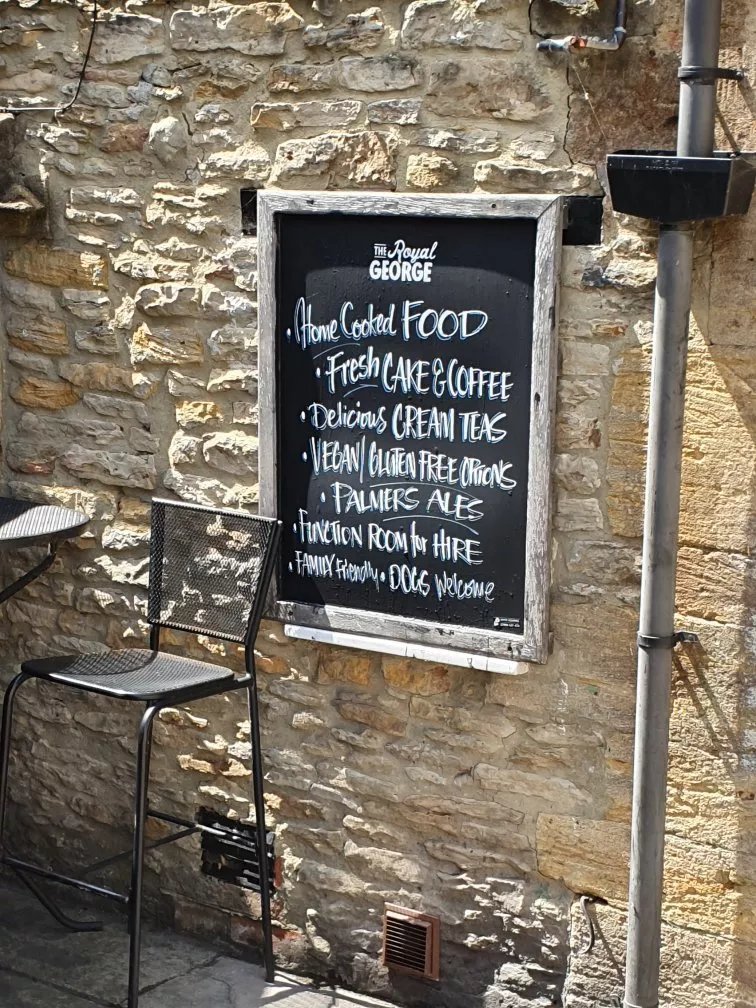 THE Royal
GEORGE
• Home Cooked FOOD
• Fresh CAKE & COFFEE
• Delicious CREAM TEAS
• VEGAN/GLUTEN FREE OPTIONS
• PALMERS ALES
• FUNCTION ROOM for HIRE
• FAMILY Friendly • DOGS Welcome